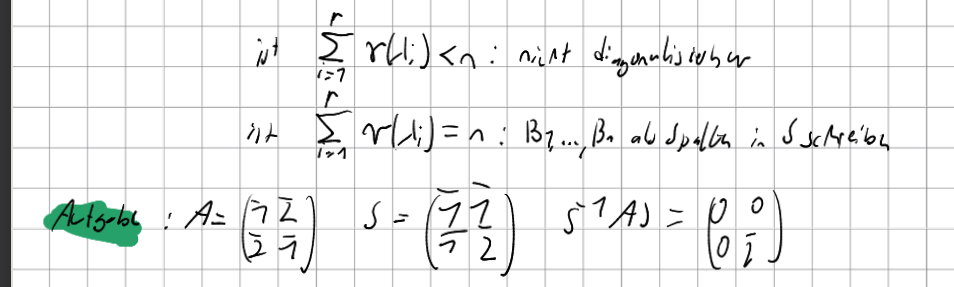 ist $\sum_{i=1}^{r} \gamma(\lambda_i) < n$ : nicht diagonalisierbar
ist $\sum_{i=1}^{r} \gamma(\lambda_i) = n$ : $B_1, ..., B_n$ als Spalten in S schreiben
Aufgabe : $A = \begin{pmatrix} \bar{1} & \bar{2} \\ \bar{2} & \bar{1} \end{pmatrix}$ $S = \begin{pmatrix} \bar{1} & \bar{1} \\ \bar{1} & 2 \end{pmatrix}$ $S^{-1}AS = \begin{pmatrix} 0 & 0 \\ 0 & \bar{2} \end{pmatrix}$